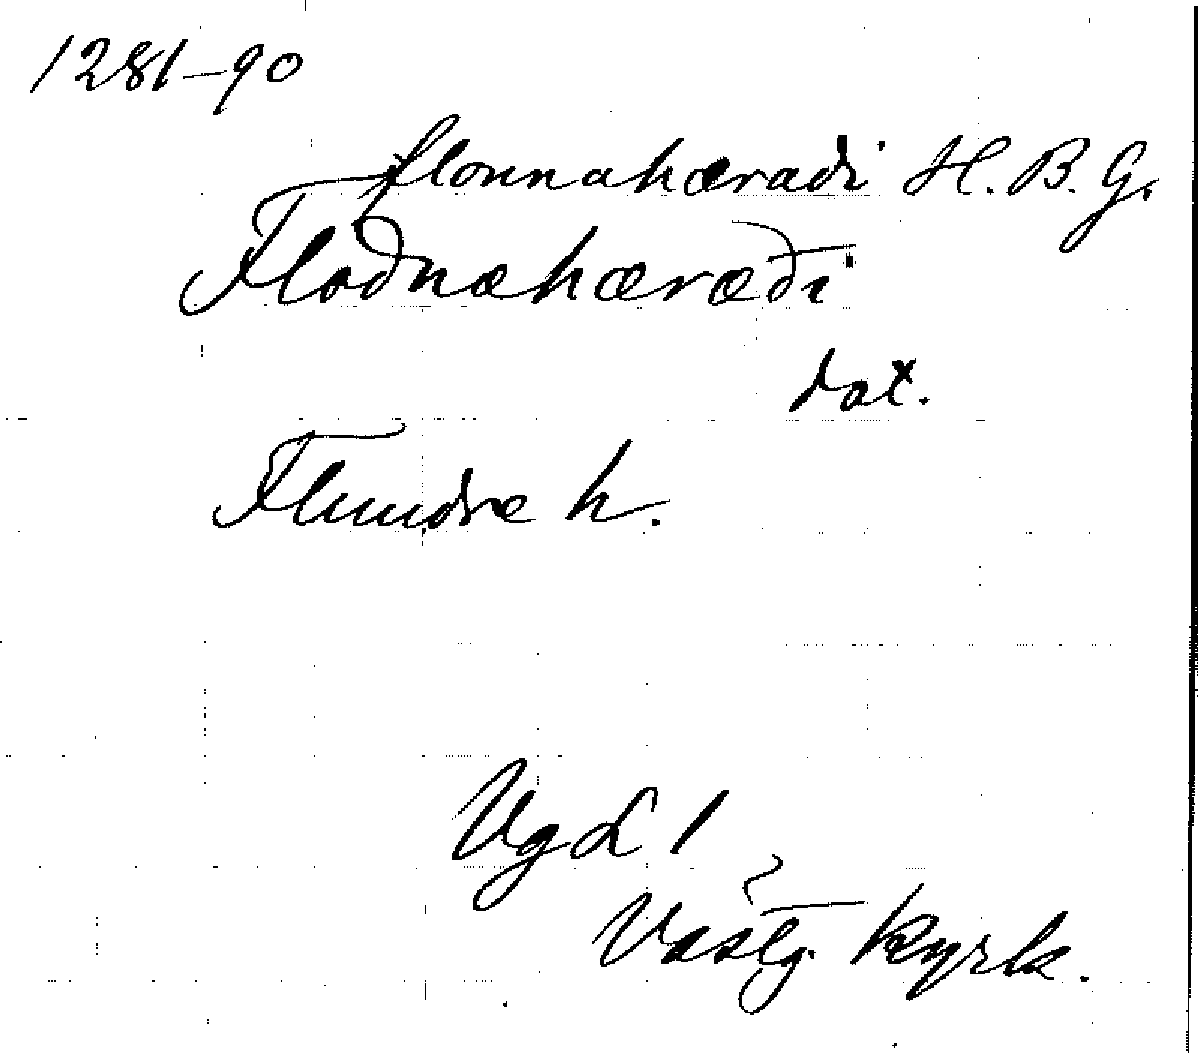 1281-90
flonnahæradi H. B. G.
Floðnæhæræði
dat.
Flundre h.
VgL 1
Västg. kyrk.